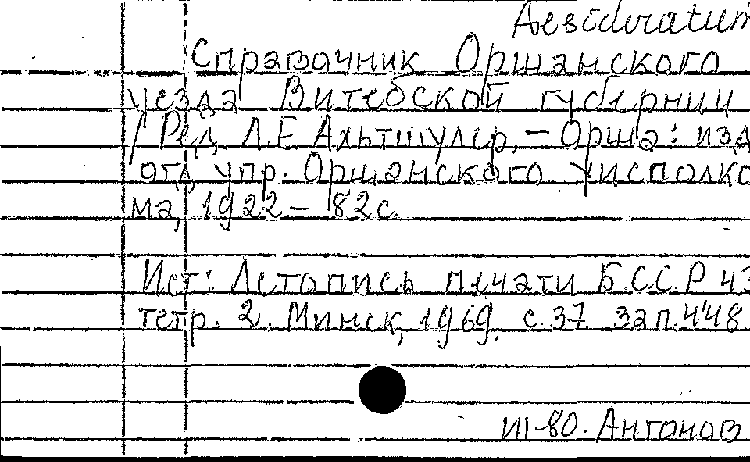 Desideratum
Справочник Оршанского
уезда Витебской губернии
/ Ред. Л.Е Альтшулер. – Орша: изд
отд. упр. Оршанского уисполко
ма, 1922 – 82 с.
Ист: Летопись печати Б.С.С.Р ч3
тетр. 2. Минск, 1969. с.37 зап.448
III-80. Антонов